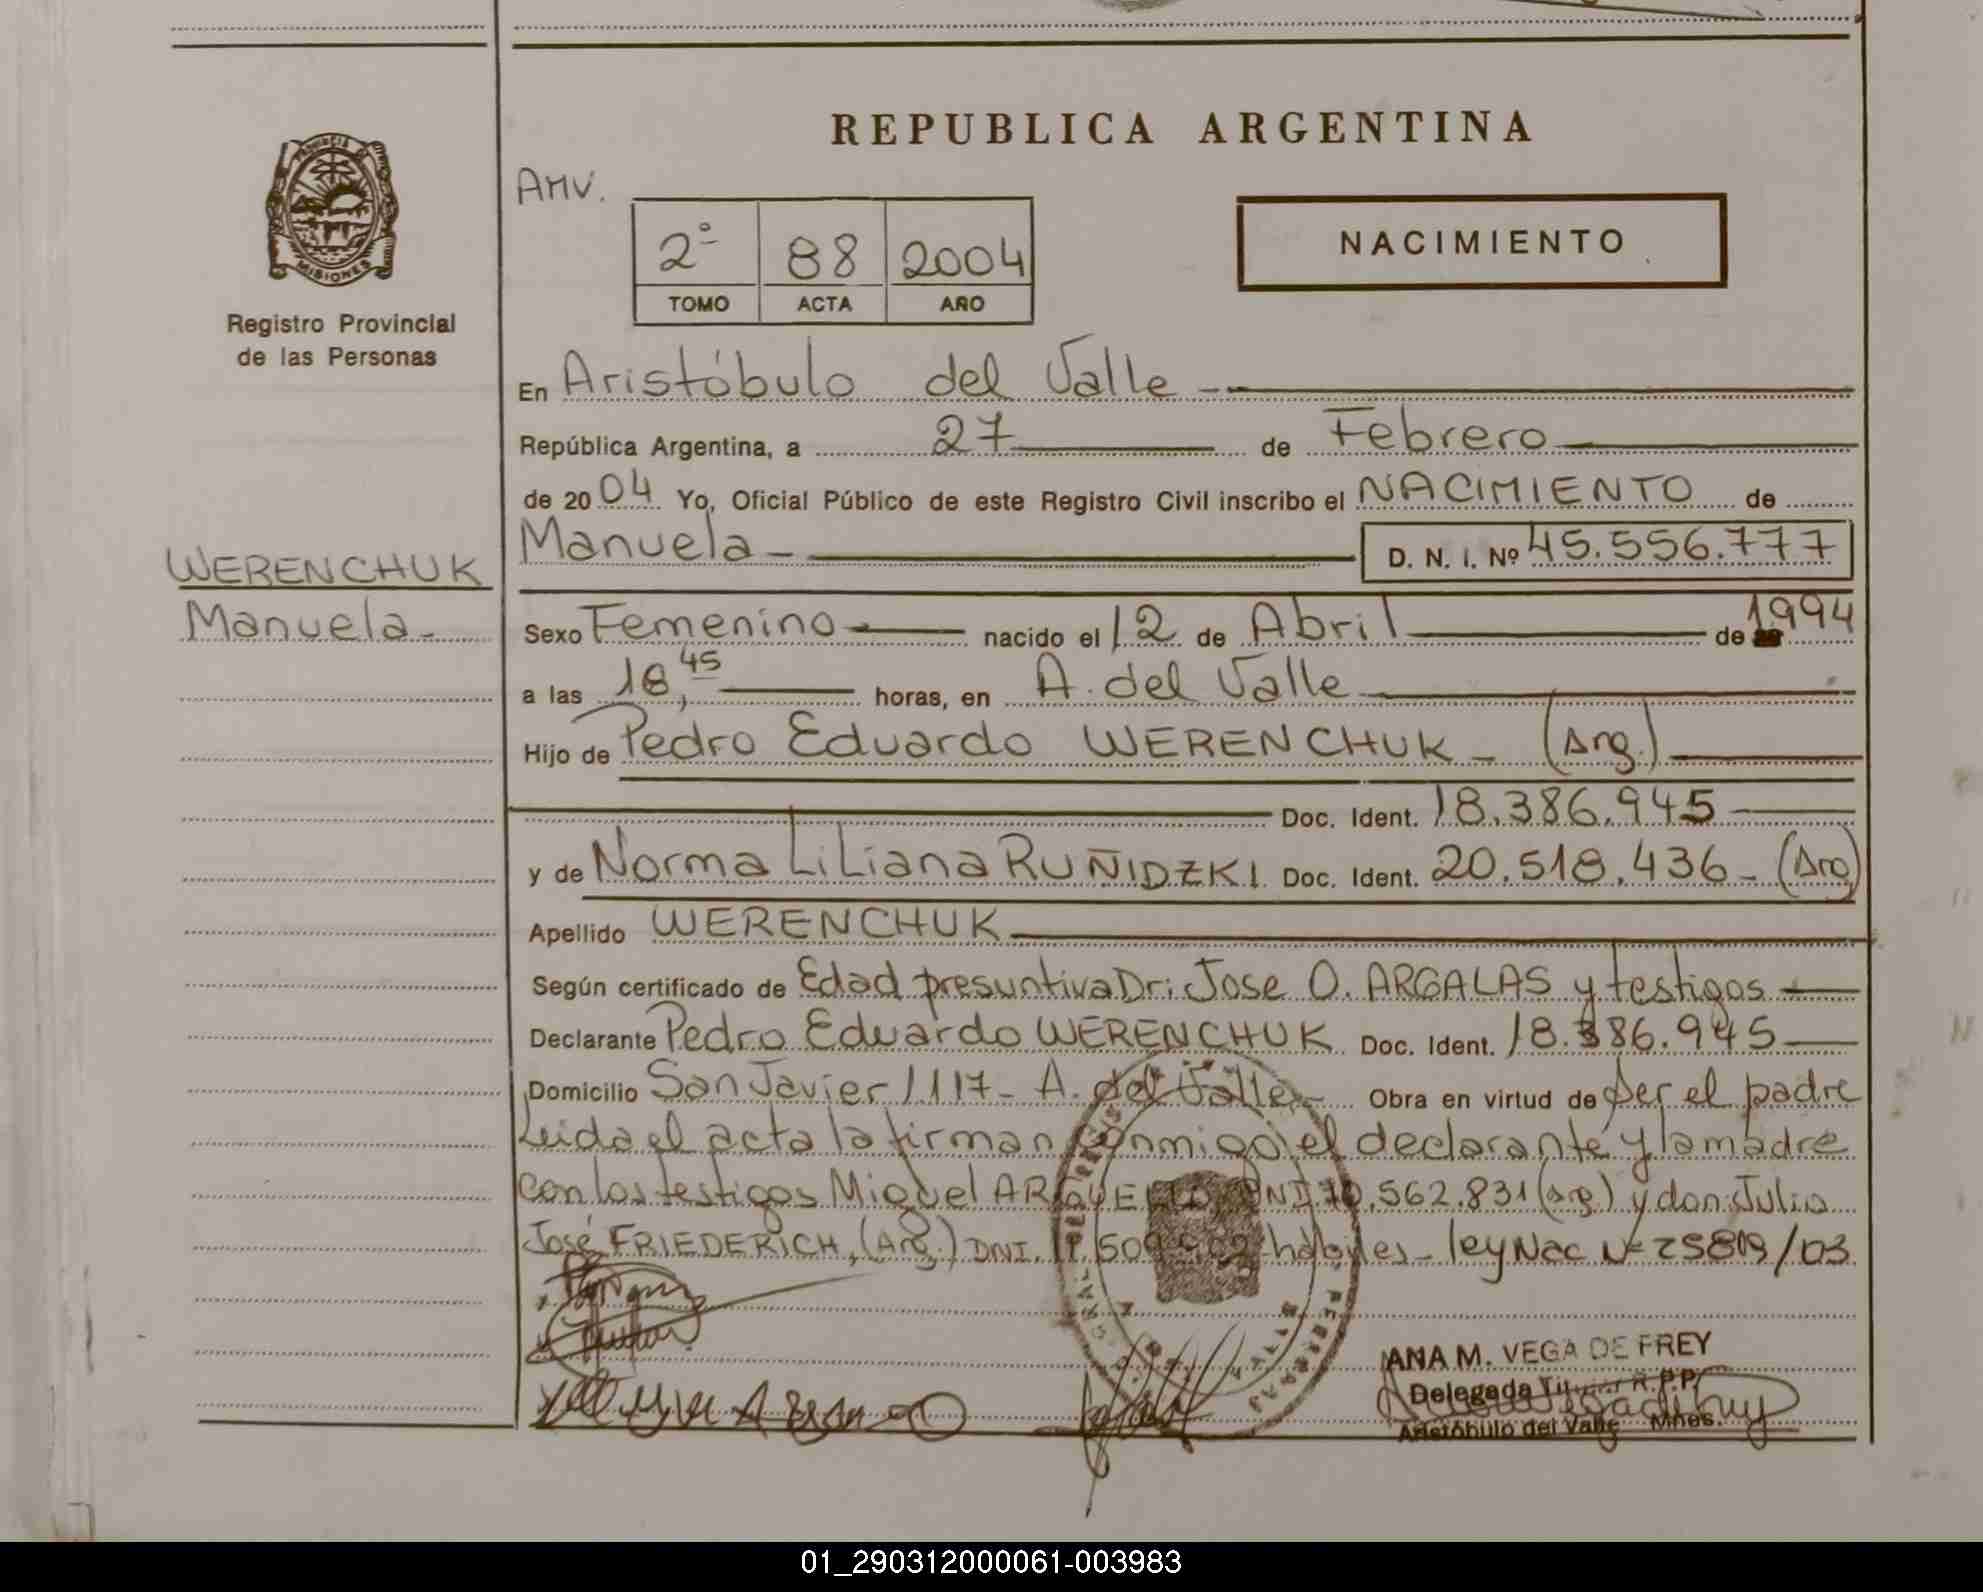 REPUBLICA ARGENTINA
PROVINCIA D
MISIONES
Registro Provincial
de las Personas
AMV.
2º 88 2004
TOMO ACTA AÑO
NACIMIENTO
En Aristóbulo del Valle
República Argentina, a 27 de Febrero
de 2004 Yo, Oficial Público de este Registro Civil inscribo el NACIMIENTO de
WERENCHUK
Manuela
Manuela D. N. I. Nº 45.556.777
Sexo Femenino nacido el 12 de Abril de 1994
a las 18,45 horas, en A. del Valle
Hijo de Pedro Eduardo WERENCHUK - (Arg.)
Doc. Ident. 18.386.945
y de Norma LiLiana RUÑIDZKI Doc. Ident. 20.518.436 - (Arg
Apellido WERENCHUK
Según certificado de Edad presuntiva Dr: Jose O. ARGALAS y testigos
Declarante Pedro Eduardo WERENCHUK Doc. Ident. 18.386.945
Domicilio San Javier 1117 - A. del Valle - Obra en virtud de ser el padre
Leida el acta la firman conmigo el declarante y la madre
con los testigos Miguel DNI 10.562.831 (Arg.) y don Julio
José FRIEDERICH, (Arg.) DNI. habiles - ley Nac Nº 25819/03
ANA M. VEGA DE FREY
Delegada Titular R.P.P.
Aristóbulo del Valle Mnes.
01_290312000061-003983